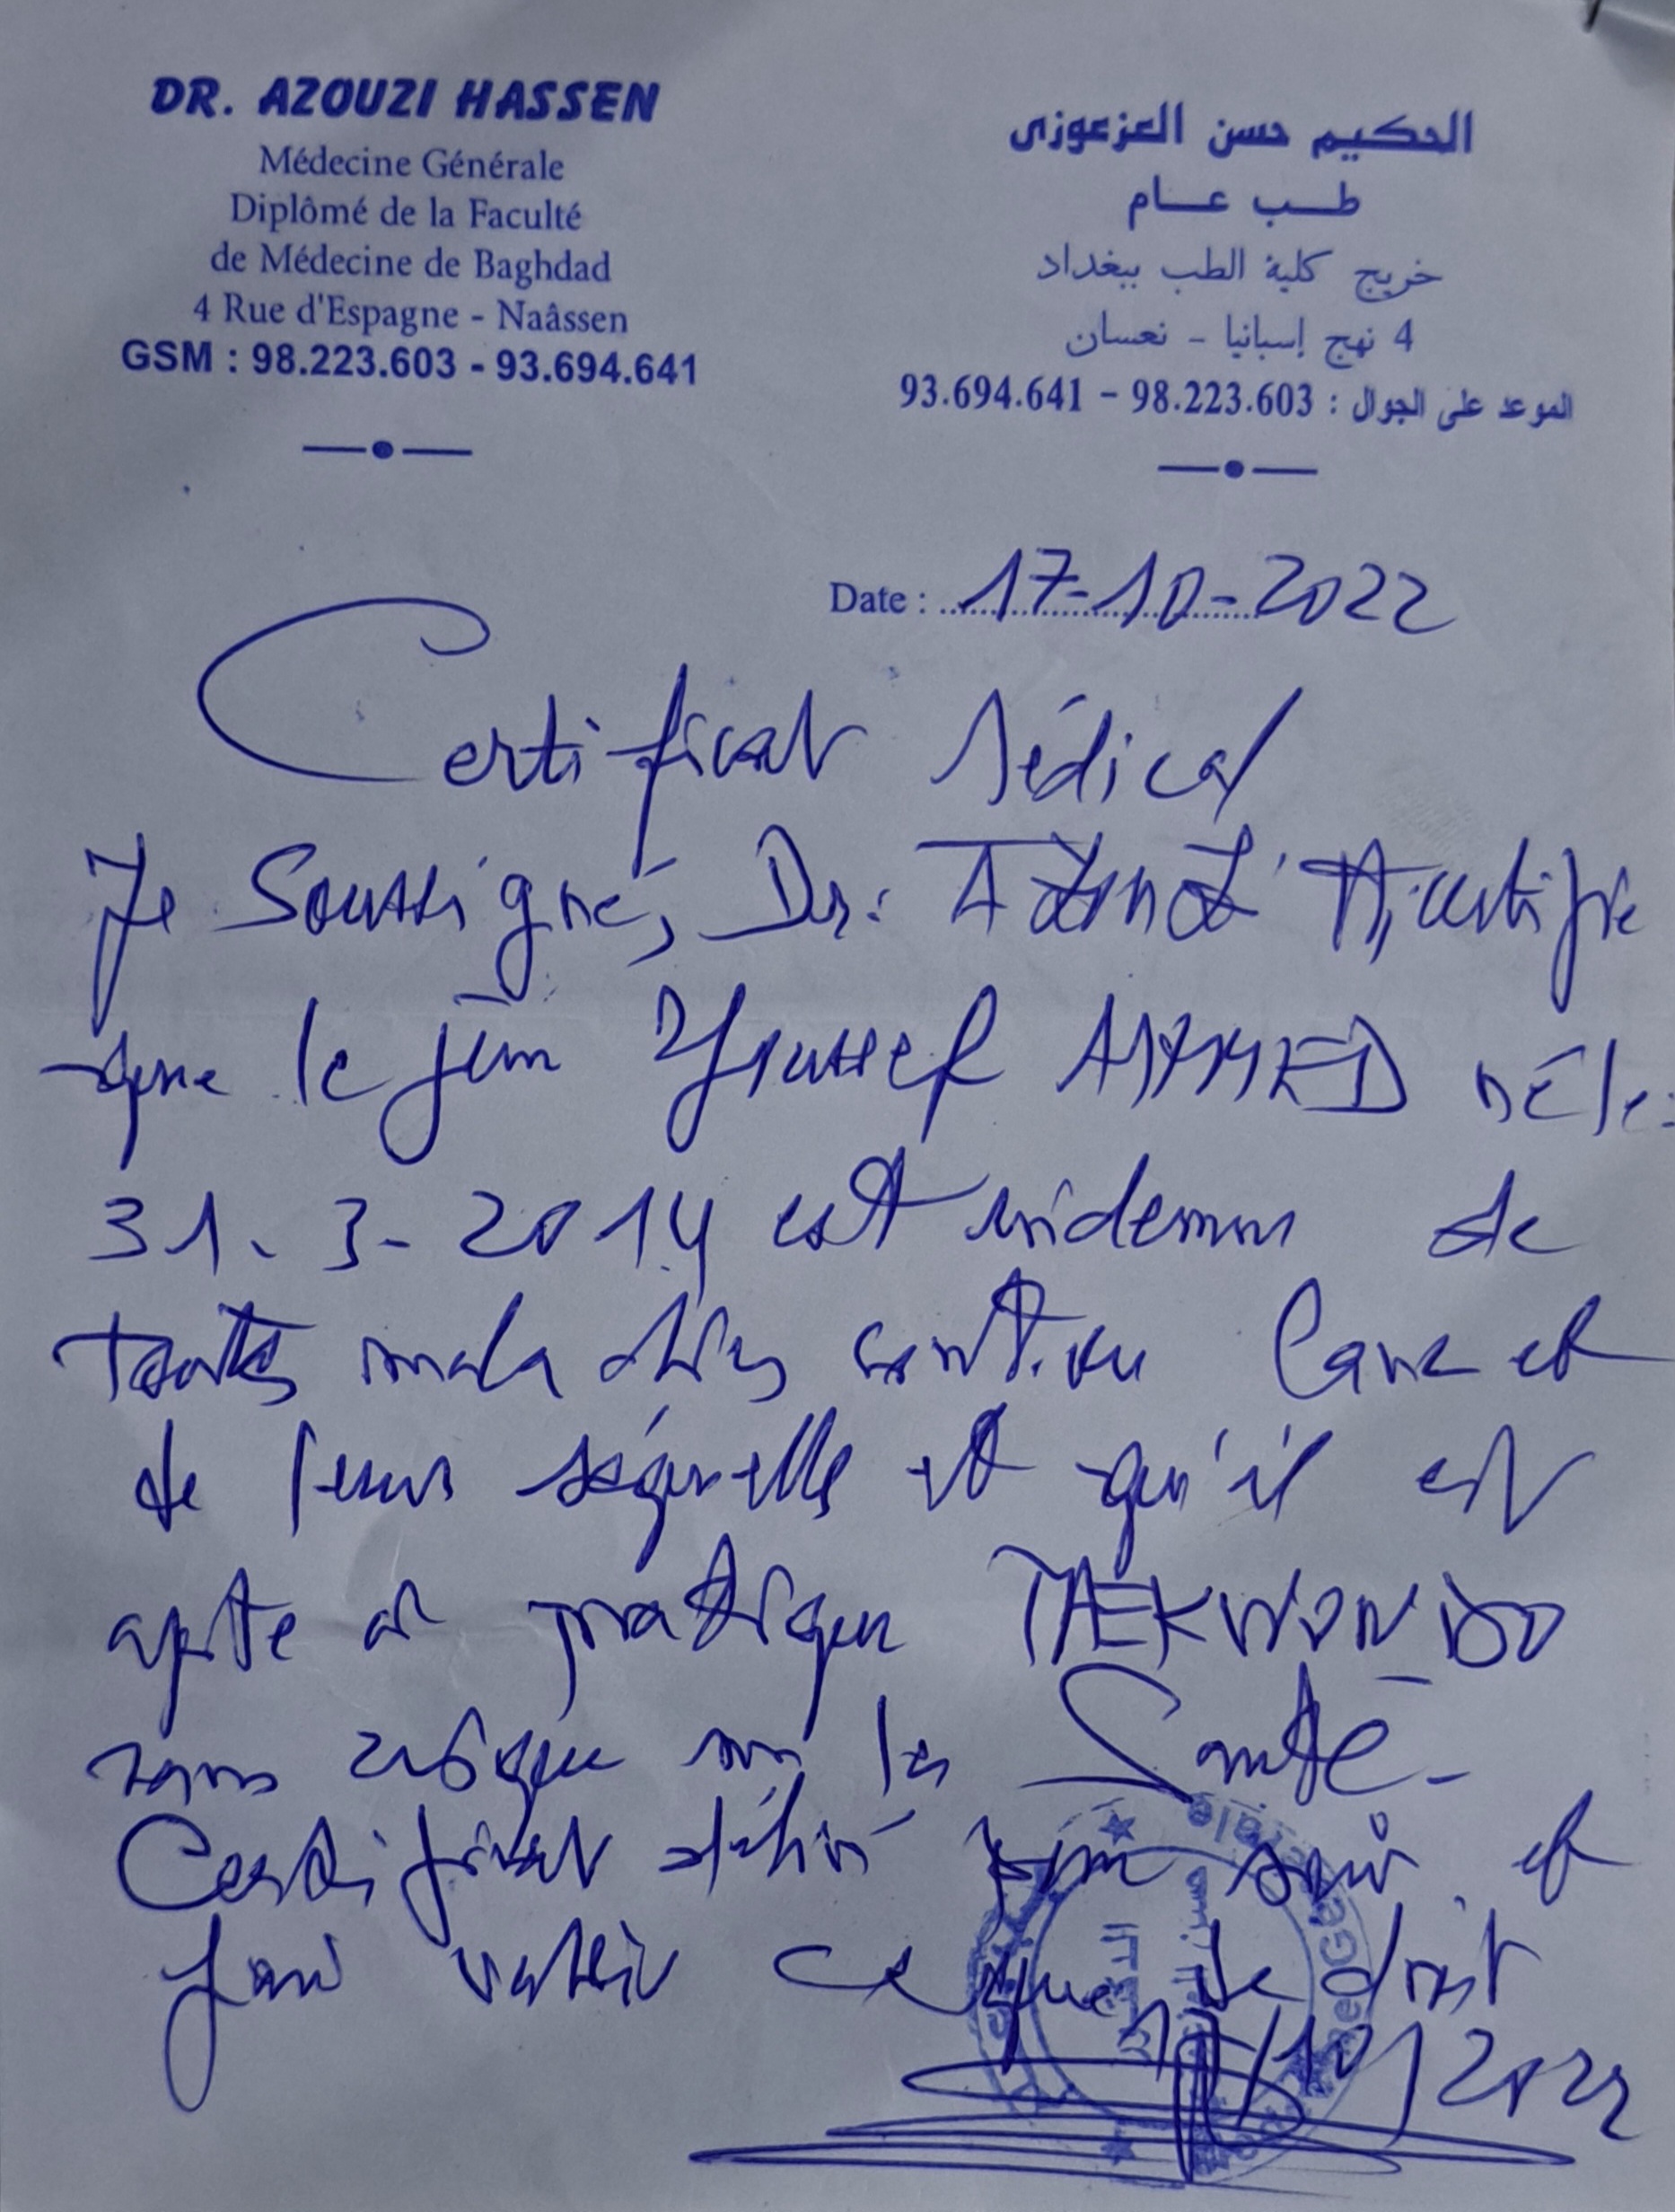 DR. AZOUZI HASSEN
Médecine Générale
Diplômé de la Faculté
de Médecine de Baghdad
4 Rue d'Espagne - Naâssen
GSM : 98.223.603 - 93.694.641
الحكيم حسن العزعوزي
طب عام
خريج كلية الطب ببغداد
4 نهج إسبانيا - نعسان
الموعد على الجوال : 98.223.603 - 93.694.641
Date : 17-10-2022
Certificat Médical
Je Soussigné, Dr. AZOUZI H, certifie
que le jeune Youssef AHMED né le:
31-3-2014 est indemne de
toutes maladies cardiovasculaire et
de leurs séquelles et qu'il est
apte à pratiquer TAEKWONDO
sans risque sur la Santé.
Certificat délivré pour servir et
faire valoir ce que de droit
17/10/2022